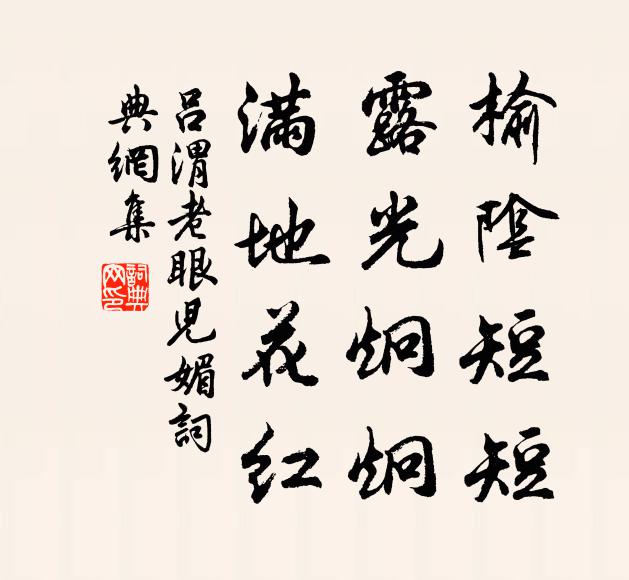 榆陰短短
露光炯炯
滿地花紅
呂渭老眼兒媚詞
典網集
詞典网印